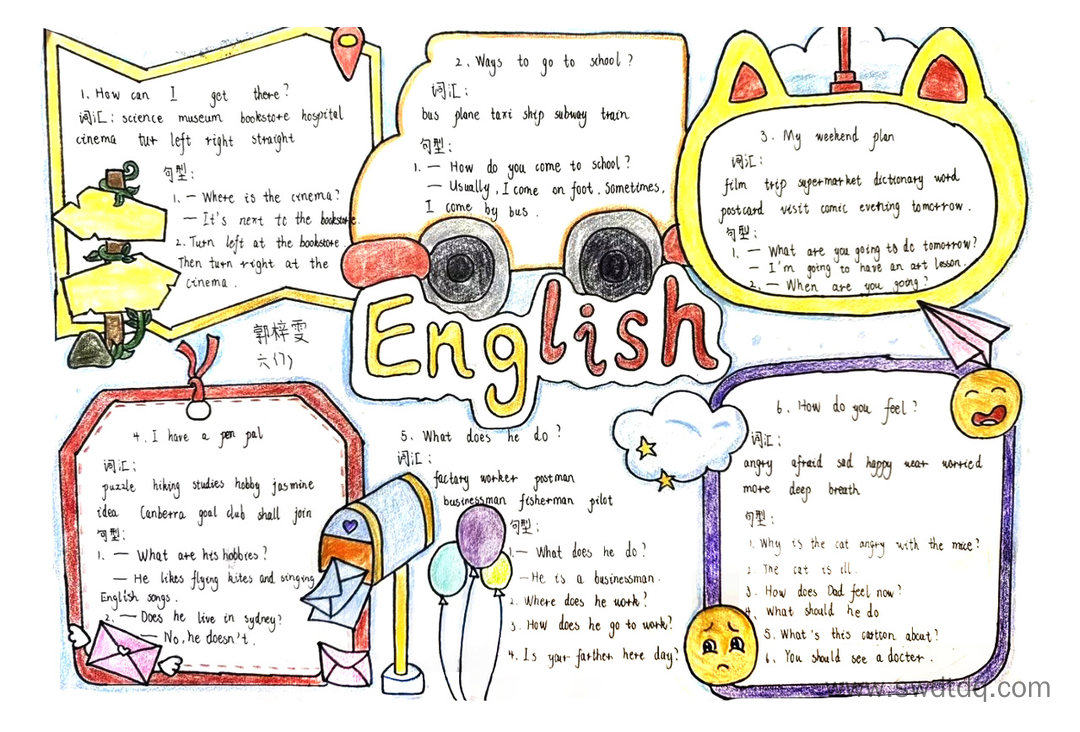 1. How can I get there?
词汇: science museum bookstore hospital
cinema tur left right straight
句型:
1. — Where is the cinema?
— It's next to the bookstore.
2. Turn left at the bookstore.
Then turn right at the
cinema.
2. Ways to go to school?
词汇:
bus plane taxi ship subway train
句型:
1. — How do you come to school?
— Usually, I come on foot. Sometimes,
I come by bus.
3. My weekend plan
词汇:
film trip supermarket dictionary word
postcard visit comic evening tomorrow.
句型:
1. — What are you going to do tomorrow?
— I'm going to have an art lesson.
2. — When are you going?
English
郭梓雯
六(7)
4. I have a pen pal
词汇:
puzzle hiking studies hobby jasmine
idea Canberra goal club shall join
句型:
1. — What are his hobbies?
— He likes flying kites and singing
English songs.
2. — Does he live in sydney?
— No, he doesn't.
5. What does he do?
词汇:
factary worker postman
businessman fisherman pilot
句型:
1. — What does he do?
— He is a businessman.
2. Where does he work?
3. How does he go to work?
4. Is your farther here day?
6. How do you feel?
词汇:
angry afraid sad happy wear worried
more deep breath
句型:
1. Why is the cat angry with the mice?
2. The cat is ill.
3. How does Dad feel now?
4. What should he do
5. What's this cartoon about?
6. You should see a docter.
www.swdtdq.com